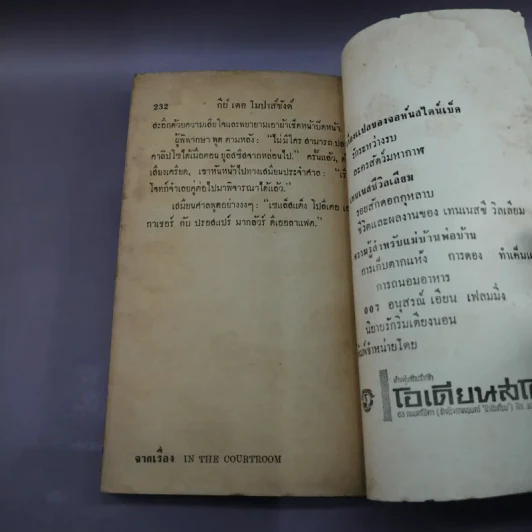 232 กีย์ เดอ โมปาส์ซังต์
สะอึกด้วยความเสียใจและพยายามเอาผ้าเช็ดหน้าปิดหน้า
ผู้พิพากษา พูด ตามหลัง : "ไม่มีใคร สามารถ
คาลิปโซได้เมื่อตอน ยูลิสซิสจากหล่อนไป." ครั้นแล้ว,
เสียงเครียด, เขาหันหน้าไปทางเสมียนประจำศาล :
โจทก์จำเลยคู่ต่อไปมาพิจารณาได้แล้ว."
เสมียนศาลพูดอย่างงงๆ :
กาเชอร์ กับ ปรอสแปร์ มากลัวร์ ดิเออลาเฟต."
จากเรื่อง IN THE COURTROOM
แปลของจอห์นสไตน์เบ็ค
รักระหว่างรบ
ละครสัตว์มหากาฬ
เทนเนสซีวิลเลียม
รอยสักดอกกุหลาบ
ชีวิตและผลงานของ เทนเนสซี วิลเลียม
ความรู้สำหรับแม่บ้านพ่อบ้าน
การเก็บตากแห้ง การดอง ทำเค็ม
การถนอมอาหาร
007 อนุสรณ์ เอียน เฟลมมิ่ง
นิยายรักริมเตียงนอน
จำหน่ายโดย
โอเดียนสโ